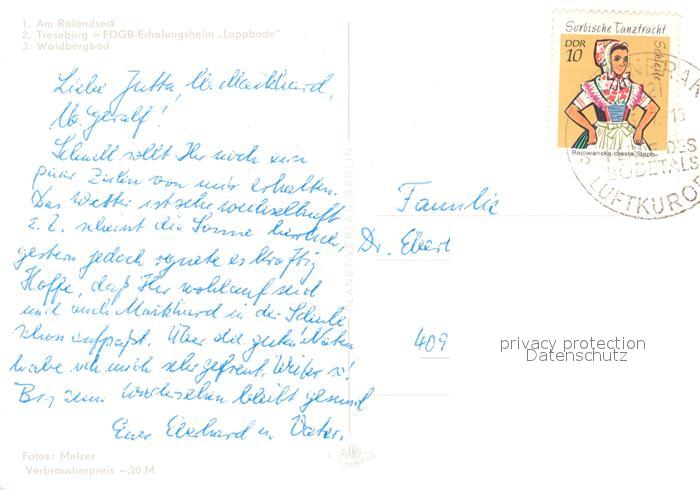 1. Am Rolandseck
2. Treseburg — FDGB-Erholungsheim „Luppbode"
3. Waldbergbad
Liebe Jutta, lb. Markhard,
lb. Geralf!
Schnell sollt Ihr noch ein
paar Zeilen von mir erhalten.
Das Wetter ist sehr wechselhaft
z. Z. scheint die Sonne herrlich,
gestern jedoch regnete es kräftig
Hoffe, daß Ihr wohlauf seid
und auch Markhard in der Schule
schön aufpaßt. Über die guten Noten
habe ich mich sehr gefreut. Weiter so!
Bis zum Wiedersehen bleibt gesund
Euer Eberhard u. Vater.
Fotos: Melzer
Verbraucherpreis —,20 M
PLANET-VERLAG BERLIN
PLANET
Familie
Dr. Ebert
409
privacy protection
Datenschutz
Sorbische Tanztracht
DDR
10
Schleife
Rejowanska drasta Slepo
DES
BODETALS
LUFTKURORT